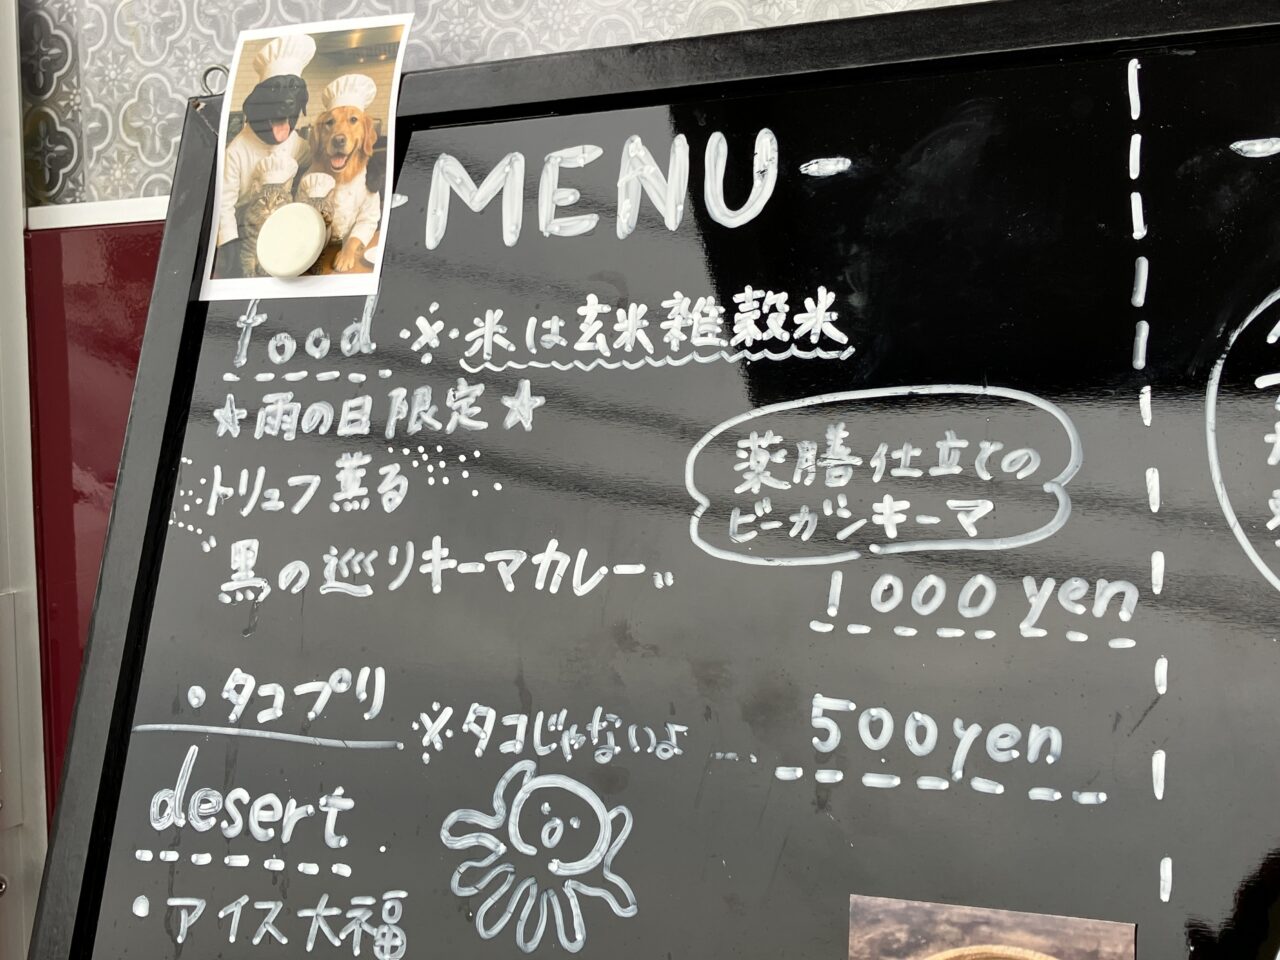 -MENU-
food ※米は玄米雑穀米
☆雨の日限定☆
トリュフ薫る
黒の巡りキーマカレー
薬膳仕立ての
ビーガンキーマ
1000yen
・タコプリ
※タコじゃないよ…
500yen
desert
・アイス大福